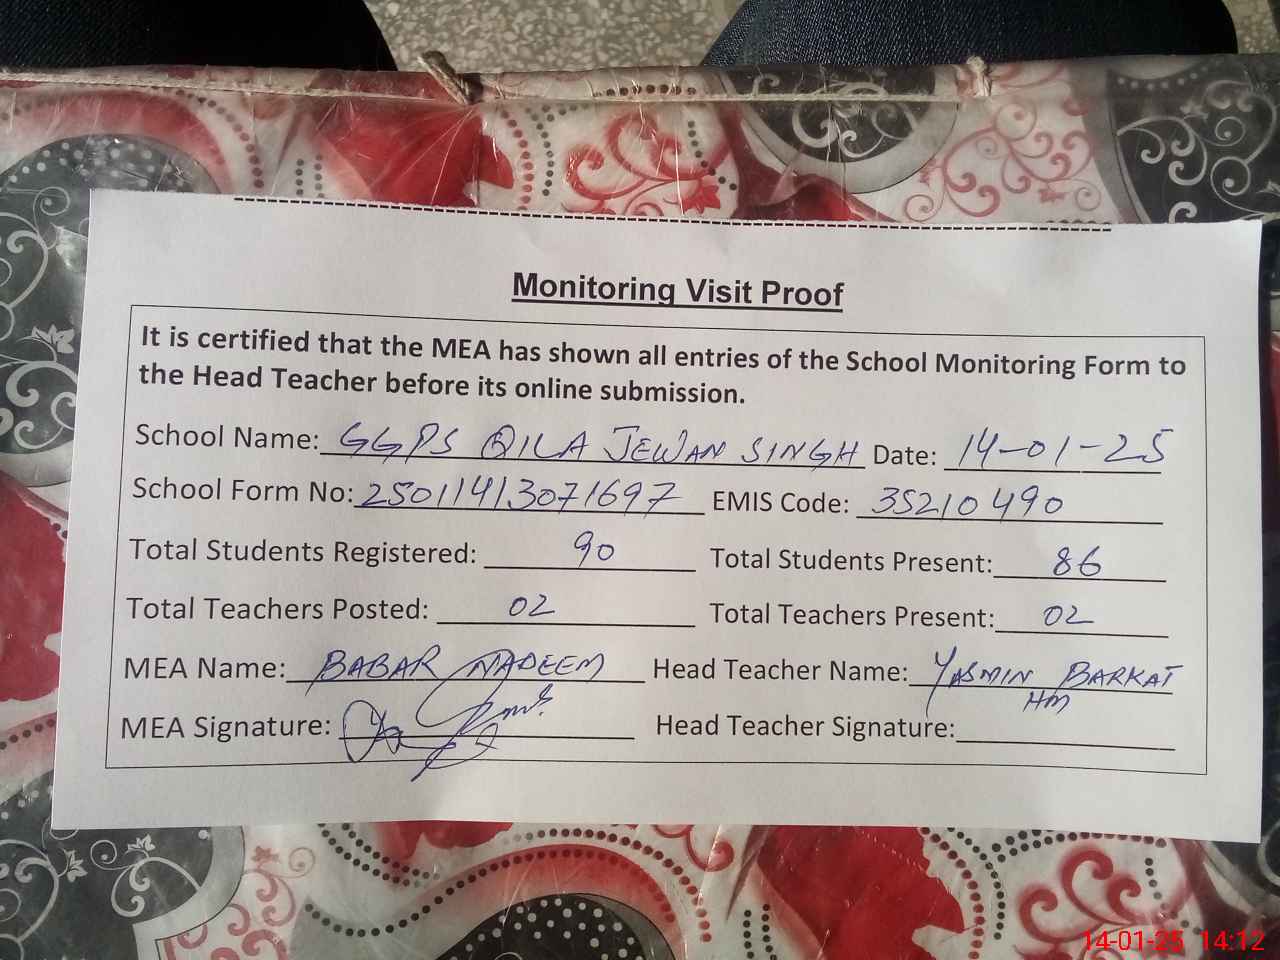 Monitoring Visit Proof
It is certified that the MEA has shown all entries of the School Monitoring Form to
the Head Teacher before its online submission.
School Name: GGPS QILA JEWAN SINGH Date: 14-01-25
School Form No: 25011413071697 EMIS Code: 35210490
Total Students Registered: 90 Total Students Present: 86
Total Teachers Posted: 02 Total Teachers Present: 02
MEA Name: BABAR NADEEM Head Teacher Name: YASMIN BARKAT
HM
MEA Signature: Head Teacher Signature:
14-01-25 14:12